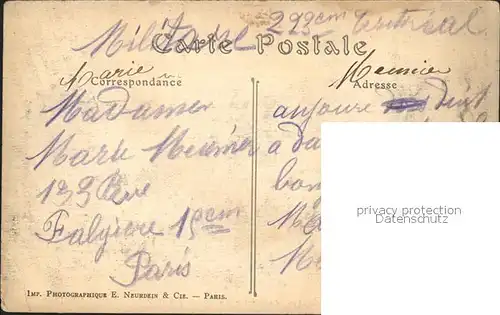 Militaire 293em Territorial
Carte Postale
Marie Meunier
Correspondance
Adresse
Madamer
Marie Meunier
133 Rue
Falgiere 15em
Paris
anjoure
a da
bon
Ma
privacy protection
Datenschutz
IMP. PHOTOGRAPHIQUE E. NEURDEIN & CIE. — PARIS.